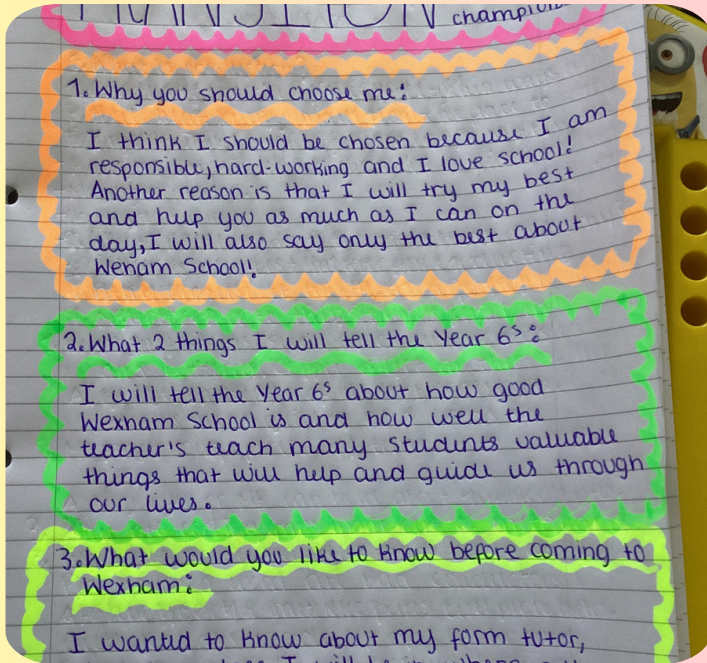 champion
1. Why you should choose me:
I think I should be chosen because I am
responsible, hard-working and I love school!
Another reason is that I will try my best
and help you as much as I can on the
day, I will also say only the best about
Wexham School!
2. What 2 things I will tell the Year 6s:
I will tell the Year 6s about how good
Wexham School is and how well the
teacher's teach many students valuable
things that will help and guide us through
our lives.
3. What would you like to know before coming to
Wexham:
I wanted to know about my form tutor,